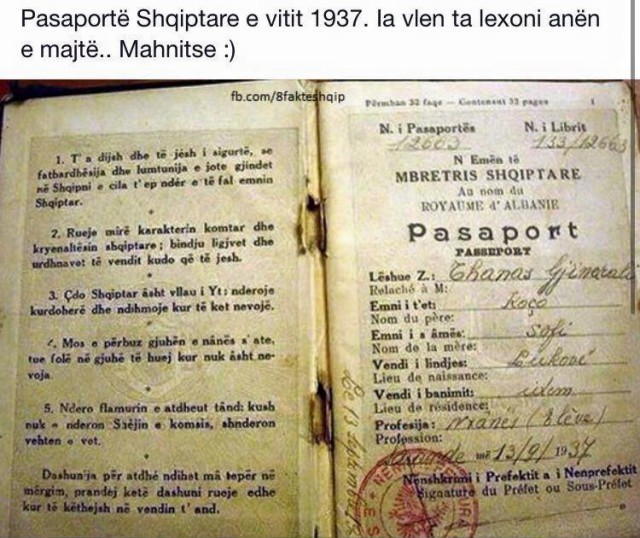 Pasaportë Shqiptare e vitit 1937. Ia vlen ta lexoni anën
e majtë.. Mahnitse :)
fb.com/8fakteshqip
1. T'a dijsh dhe të jêsh i sigurtë, se
fatbardhësija dhe lumtunija e jote gjindet
në Shqipni e cila t'ep ndér e të fal emnin
Shqiptar.
2. Rueje mirë karakterin komtar dhe
kryenaltësin shqiptare; bindju ligjvet dhe
urdhnavet të vendit kudo që të jesh.
3. Çdo Shqiptar âsht vllau i Yt: nderoje
kurdoherë dhe ndihmoje kur të ket nevojë.
4. Mos e përbuz gjuhën e nânës s'ate,
tue folë në gjuhë të huej kur nuk âsht ne-
voja.
5. Ndero flamurin e atdheut tând: kush
nuk e nderon Szêjin e komsis, shnderon
vehten e vet.
Dashunija për atdhé ndihet mâ tepër në
mërgim, prandej ketë dashuni rueje edhe
kur të këthejsh në vendin t'and.
Përmban 32 faqe — Contenant 32 pages 1
N. i Pasaportës N. i Librit
12663 133/12663
N Emën të
MBRETRIS SHQIPTARE
Au nom du
ROYAUME d'ALBANIE
Pasaport
PASSEPORT
Lëshue Z.: Thanas Gjinarali
Relaché à M:
Emni i t'et: Koço
Nom du père:
Emni i s'âmës: Sofi
Nom de la mère:
Vendi i lindjes: Lukovë
Lieu de naissance:
Vendi i banimit: idem
Lieu de résidence:
Profesija: Nxanës (Elève)
Profession:
Sarandë më 13/9/1937
Nënshkrimi i Prefektit a i Nenprefektit
Signature du Préfet ou Sous-Préfet
Le 13 septembre